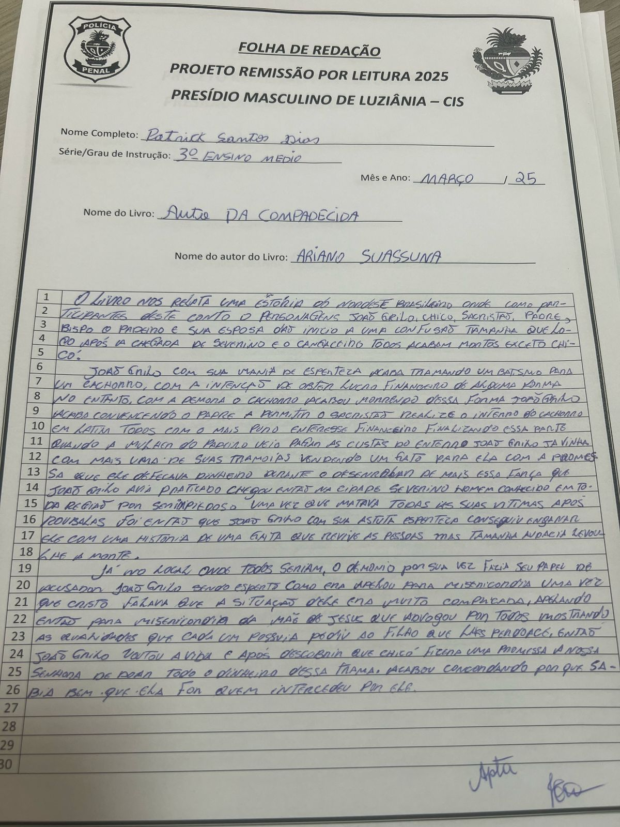 POLÍCIA
PENAL
FOLHA DE REDAÇÃO
PROJETO REMISSÃO POR LEITURA 2025
PRESÍDIO MASCULINO DE LUZIÂNIA – CIS
Nome Completo: Patrick Santos Dias
Série/Grau de Instrução: 3º ENSINO MEDIO
Mês e Ano: MARÇO / 25
Nome do Livro: Auto DA COMPADECIDA
Nome do autor do Livro: ARIANO SUASSUNA
1 O LIVRO NOS RELATA UMA ESTÓRIA DO NORDESE BRASILEIRO ONDE COMO PAR-
2 TICIPANTES DESTE CONTO O PERSONAGENS JOÃO GRILO, CHICO, SACRISTÃO, PADRE,
3 BISPO O PADEIRO E SUA ESPOSA DÃO INICIO A UMA CONFUSÃO TAMANHA QUE LO-
4 GO APÓS A CHEGADA DE SEVERINO E O CANGACEIRO TODOS ACABAM MORTOS EXCETO CHI-
5 CÓ.
6 JOÃO GRILO COM SUA MANIA DE ESPERTEZA ACABA TRAMANDO UM BATISMO PARA
7 UM CACHORRO, COM A INTENÇÃO DE OBTER LUCRO FINANCEIRO DE ALGUMA FORMA
8 NO ENTANTO, COM A DEMORA O CACHORRO ACABOU MORRENDO DESSA FORMA JOÃO GRILO
9 ACABA CONVENCENDO O PADRE A PERMITIR O SACRISTÃO REALIZE O INTERRO DO CACHORRO
10 EM LATIM TODOS COM O MAIS PURO ENTERESSE FINANCEIRO FINALIZANDO ESSA PARTE
11 QUANDO A MULHER DO PADEIRO VEIO PAGAR AS CUSTAS DO ENTERRO JOÃO GRILO JA VINHA
12 COM MAIS UMA DE SUAS TRAMOIAS VENDENDO UM GATO PARA ELA COM A PROMES
13 SA QUE ELE DEFECAVA DINHEIRO DURANTE O DESENROLAR DE MAIS ESSA FARÇA QUE
14 JOÃO GRILO AVIA PRATICADO CHEGOU ENTÃO NA CIDADE SEVERINO HOMEM CONHECIDO EM TO-
15 DA REGIÃO POR SER IMPIEDOSO UMA VEZ QUE MATAVA TODAS AS SUAS VITIMAS APÓS
16 ROUBALAS FOI ENTÃO QUE JOÃO GRILO COM SUA ASTUTA ESPERTEZA CONSEGUIU ENGANAR
17 ELE COM UMA HISTORIA DE UMA GAITA QUE REVIVE AS PESSOAS MAS TAMANHA AUDACIA LEVOU
18 LHE A MORTE.
19 JÁ NO LOCAL ONDE TODOS SERIAM, O DEMONIO POR SUA VEZ FAZIA SEU PAPEL DE
20 ACUSADOR JOÃO GRILO SENDO ESPERTO COMO ERA APELOU PARA MISERICORDIA UMA VEZ
21 QUE CRISTO FALAVA QUE A SITUAÇÃO DELE ERA MUITO COMPLICADA, APELANDO
22 ENTÃO PARA MISERICORDIA DA MÃE DE JESUS QUE ADVOGOU POR TODOS MOSTRANDO
23 AS QUALIDADES QUE CADA UM POSSUIA PEDIU AO FILHO QUE LHES PERDOACE, ENTÃO
24 JOÃO GRILO VOLTOU A VIDA E APÓS DESCOBRIR QUE CHICÓ FIZERA UMA PROMESSA A NOSSA
25 SENHORA DE DOAR TODO O DINHEIRO DESSA TRAMA, ACABOU CONCORDANDO POR QUE SA-
26 BIA BEM QUE ELA FOR QUEM INTERCEDEU POR ELE.
27
28
29
30
Apto